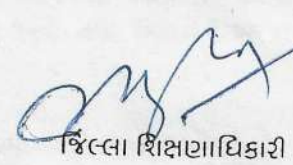 જિલ્લા શિક્ષણાધિકારી